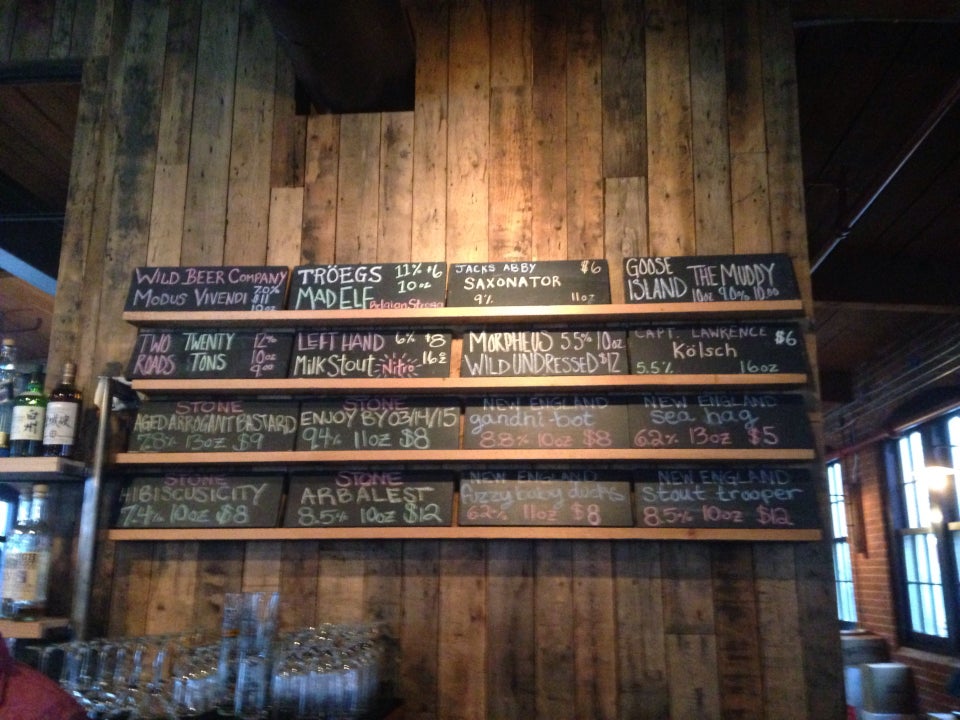 WILD BEER COMPANY
MODUS VIVENDI 7.0%
$11
10oz
TRÖEGS 11% $6
MAD ELF 10oz
Belgian Strong
JACKS ABBY $6
SAXONATOR
9% 11oz
GOOSE ISLAND THE MUDDY
10oz 9.0% 10.00
TWO ROADS TWENTY TONS 12%
10oz
9.00
LEFT HAND 6% $8
Milk Stout Nitro 16oz
MORPHEUS 5.5% 10oz
WILD UNDRESSED $12
CAPT. LAWRENCE $6
Kölsch
5.5% 16oz
STONE
AGED ARROGANT BASTARD
7.8% 13oz $9
STONE
ENJOY BY 03/14/15
9.4% 11oz $8
NEW ENGLAND
gandhi-bot
8.8% 10oz $8
NEW ENGLAND
sea hag
6.2% 13oz $5
STONE
HIBISCUSICITY
7.4% 10oz $8
STONE
ARBALEST
8.5% 10oz $12
NEW ENGLAND
fuzzy baby ducks
6.2% 11oz $8
NEW ENGLAND
stout trooper
8.5% 10oz $12